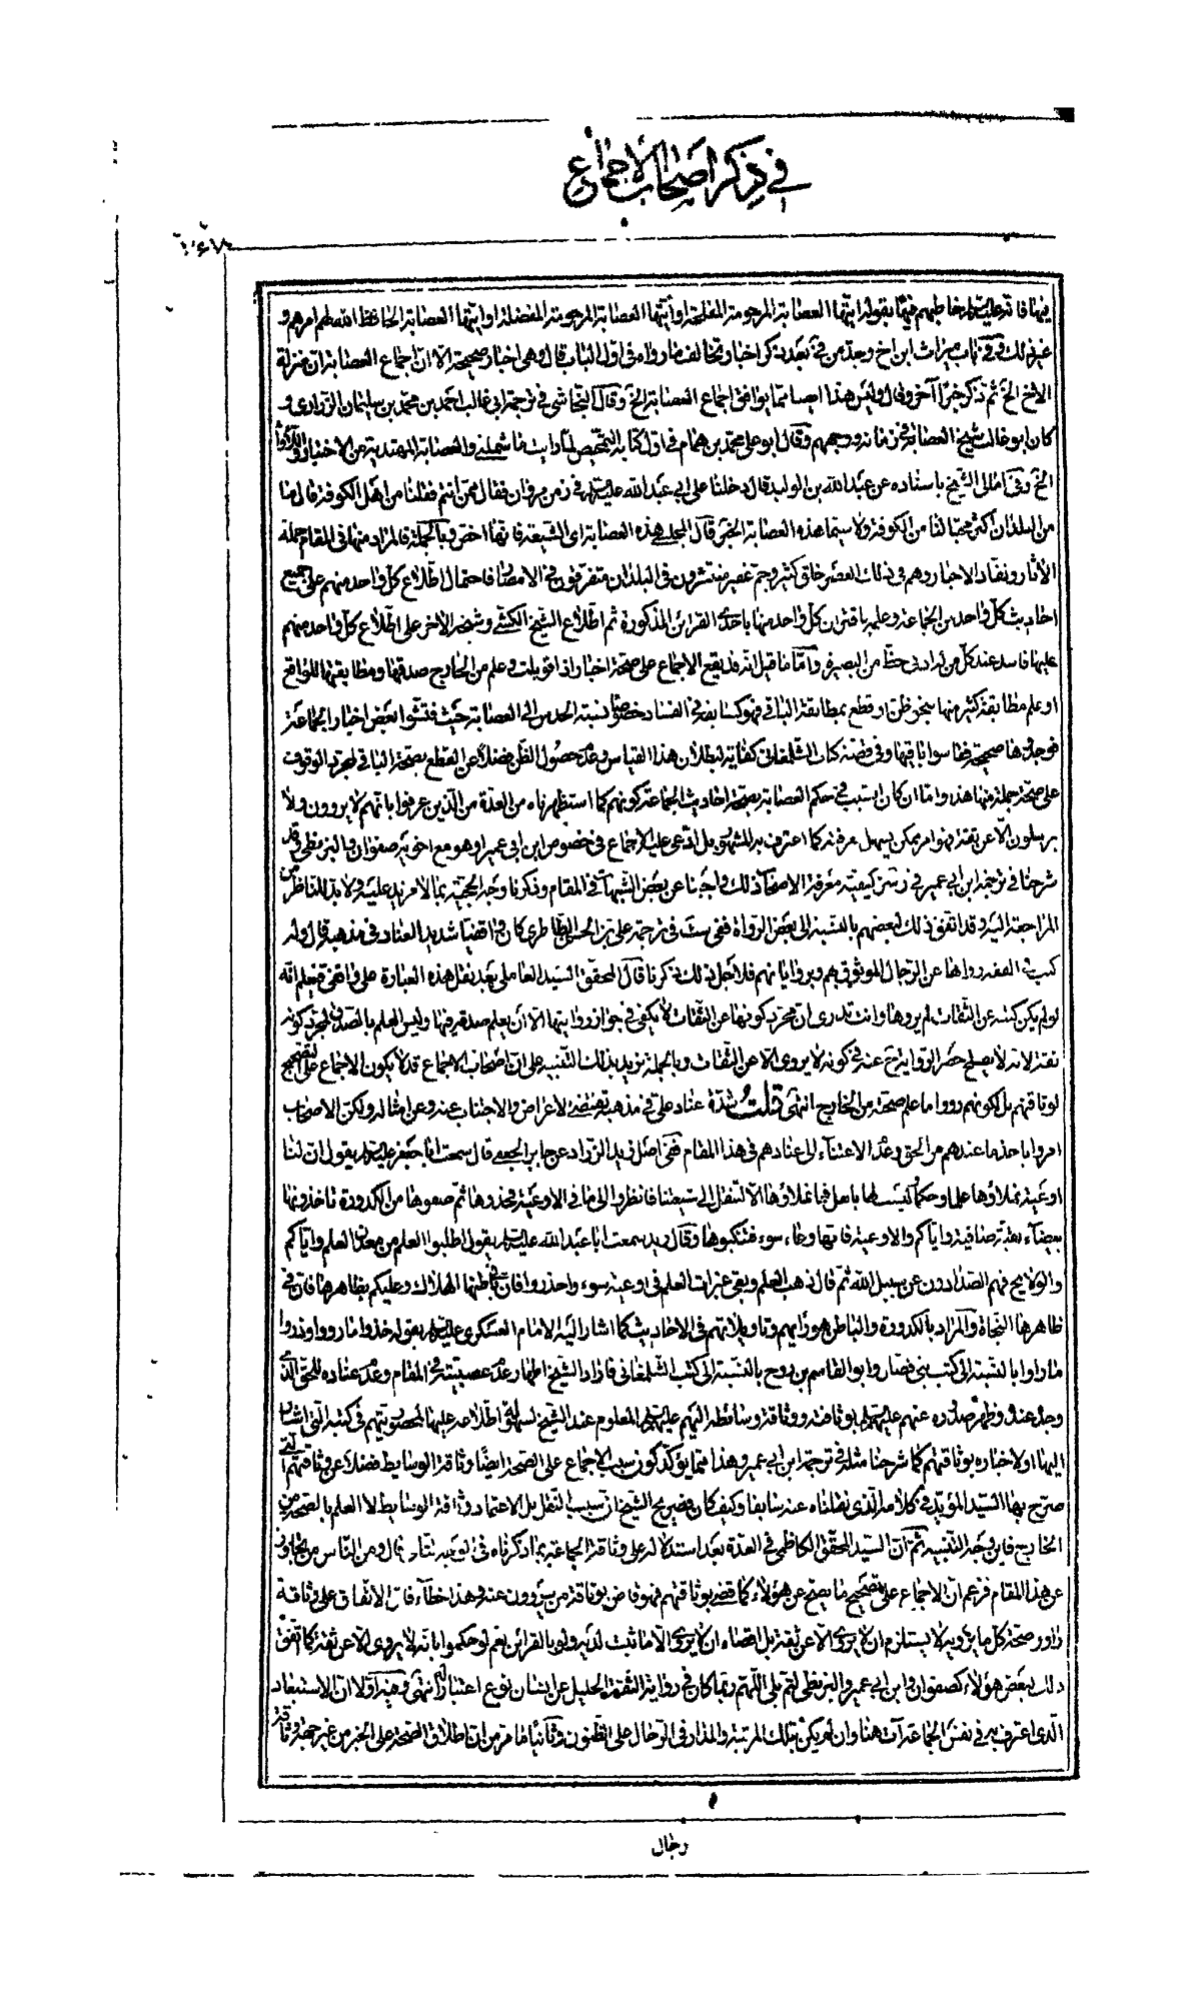 في ذكر اصحاب الاجماع
فيها فانه عليه السلام خاطبهم فيها بقوله ايتها العصابة المرحومة المفلحة وايتها العصابة المرحومة المفضلة وايتها العصابة الحافظ الله لهم امرهم و
غير ذلك وفي في باب ميراث ابن اخ وجد من في بعد ذكر اخبار تخالف ما رواه في اول الباب قال وهي اخبار صحيحة الا ان اجماع العصابة ان منزلة
الاخ الخ ثم ذكر خبرا آخر وقال وليس هذا ايضا مما يوافق اجماع العصابة الخ وقال النجاشي في ترجمة ابي غالب احمد بن محمد بن سليمان الزراري و
كان ابو غالب شيخ العصابة في زمانه ووجههم وقال ابو علي محمد بن همام في اول كتابه التمحيص لما رايت ما شملني والعصابة المهتدية من الاختبار واللأواء
الخ وفي امالي الشيخ باسناده عن عبدالله بن الوليد قال دخلنا على ابي عبد الله عليه السلام في زمن مروان فقال ممن انتم فقلنا من اهل الكوفة قال ما
من البلدان اكثر محبا لنا من الكوفة ولا سيما هذه العصابة الخبر قال المجلسي هذه العصابة اى الشيعة فانها اخص وبالجملة فالمراد منها في المقام حملة
الآثار ونقاد الاخبار وهم في ذلك العصر خلق كثير وجم غفير منتشرون في البلدان متفرقون في الامصار فاحتمال اطلاع كل واحد منهم على جميع
احاديث كل واحد من الجماعة وعلمه باقتران كل واحد منها باحدى القرائن المذكورة ثم اطلاع الشيخ الكشي وشيخه الآخر على اطلاع كل واحد منهم
عليها فاسد عند كل من له ادنى حظ من البصيرة واما ما قيل انه قد يقع الاجماع على صحة اخبار اذا قوبلت وعلم من الخارج صدقها ومطابقتها للواقع
او علم مطابقة كثير منها بنحو ظن او قطع بمطابقة الباقي فهو كسابقه في الفساد خصوصا لنسبة الحدس الى العصابة حيث فتشوا بعض اخبار الجماعة
فوجدوها صحيحة فقاسوا باقيها وفي قصة كتاب الشلمغاني كفاية لبطلان هذا القياس وعدم حصول الظن فضلا عن القطع بصحة الباقي لمجرد الوقوف
على صحة جملة منها هذا واما ان كان السبب في حكم العصابة بصحة احاديث الجماعة كونهم كما استظهرناه من العدة من الذين عرفوا بانهم لا يروون ولا
يرسلون الا عن ثقة فهو امر ممكن يسهل معرفته كما اعترف به المشهور بل ادعى عليه الاجماع في خصوص ابن ابي عمير او هو مع اخويه صفوان والبزنطي وقد
شرحنا في ترجمة ابن ابي عمير في كيفية معرفة الاصحاب ذلك واجبنا عن بعض الشبهات في المقام وذكرنا وجه الحجية بما لا مزيد عليه ولا بد للناظر من
المراجعة اليه وقد اتفق ذلك لبعضهم بالنسبة الى بعض الرواة ففي ست في ترجمة علي بن الحسن الطاطري كان واقفيا شديد العناد في مذهبه قال وله
كتب في الفقه رواها عن الرجال الموثوق بهم وبرواياتهم فلاجل ذلك ذكرنا قال المحقق السيد العاملي بعد نقل هذه العبارة على واقفي فيعلم انه
لو لم يكن كتبه عن الثقات لم يروها وانت تدري ان مجرد كونها عن الثقات لا يكفي في جواز روايتها الا ان يعلم صدقه فيها وليس العلم بالصدق لمجرد كونه
ثقة لانه لا يصلح حصر الرواية عنه في كونه لا يروى الا عن الثقات وبالجملة نريد بذلك التنبيه على ان اصحاب الاجماع قد لا يكون الاجماع على التصحيح
لوثاقتهم بل لكونهم رووا ما علم صحته من الخارج انتهى قلت شدة عناد علي في مذهبه تقتضي الاعراض والاجتناب عنه وعن امثاله ولكن الاصحاب
امروا باخذ ما عندهم من الحق وعدم الاعتناء الى عنادهم في هذا المقام ففي اصل زيد الزراد عن جابر الجعفي قال سمعت ابا جعفر عليه السلام يقول ان لنا
اوعية نملاؤها علما وحكما وليست لها باهل فما نملاؤها الا لتنقل الى شيعتنا فانظروا الى ما في الاوعية فخذوها ثم صفوها من الكدورة تاخذونها
بيضاء نقية صافية واياكم والاوعية فانها وعاء سوء فتنكبوها وقال زيد سمعت ابا عبد الله عليه السلام يقول اطلبوا العلم من معدن العلم واياكم
والولايج فهم الصدادون عن سبيل الله ثم قال ذهب العلم وبقي غبرات العلم في اوعية سوء واحذروا باطنها فان في باطنها الهلاك وعليكم بظاهرها فان في
ظاهرها النجاة والمراد بالكدورة والباطن هو آراءهم وتاويلاتهم في الاحاديث كما اشار اليه الامام العسكري عليه السلام بقوله خذوا ما رووا وذروا
ما راوا بالنسبة الى كتب بني فضال وابو القاسم بن روح بالنسبة الى كتب الشلمغاني فاراد الشيخ اظهار عدم عصبيته في المقام وعدم عناده للحق الذي
وجد عنده وظهر صدوره عنهم عليهم السلام بوثاقته ووثاقة وسائطه اليهم عليهم السلام المعلوم عند الشيخ لسهولة اطلاعه عليها لمحصوريتهم في كتبه التي اشار
اليها او لاخباره بوثاقتهم كما شرحنا مثله في ترجمة ابن ابي عمير وهذا مما يؤكد كون سبب الاجماع على الصحة ايضا وثاقة الوسايط فضلا عن وثاقتهم التي
صرح بها السيد المؤيد في كلامه الذي نقلناه عنه سابقا وكيف كان فصريح الشيخ ان سبب النقل بل الاعتماد وثاقة الوسايط لا العلم بالصحة من
الخارج فاين وجه التنبيه ثم ان السيد المحقق الكاظمي في العدة بعد استدلاله على وثاقة الجماعة بما ذكرناه في الوجه قال ومن الناس من تجاوز
عن هذا المقام فزعم ان الاجماع على تصحيح ما يصح عن هؤلاء كما قضى بوثاقتهم فهو قاض بوثاقة من يروون عنه وهذا خطاء فان الاتفاق على وثاقة
راو وصحة كل ما يرويه لا يستلزم ان لا يروى الا عن ثقة بل اقصاه ان لا يروى الا ما ثبت لديه ولو بالقرائن نعم لو حكموا بانه لا يروى الا عن ثقة كما اتفق
ذلك لبعض هؤلاء كصفوان وابن ابي عمير والبزنطي لتم بلى اللهم ربما كان في رواية الثقة الجليل عن انسان نوع اعتبار له انتهى وفيه اولا ان الاستبعاد
الذى اعترف به في نفس الجماعة آت هنا وان لم يكن بتلك المرتبة والمدار في الرجال على الظنون وثانيا ما مر من ان اطلاق الصحة على الخبر من غير جهة وثاقة
رجال